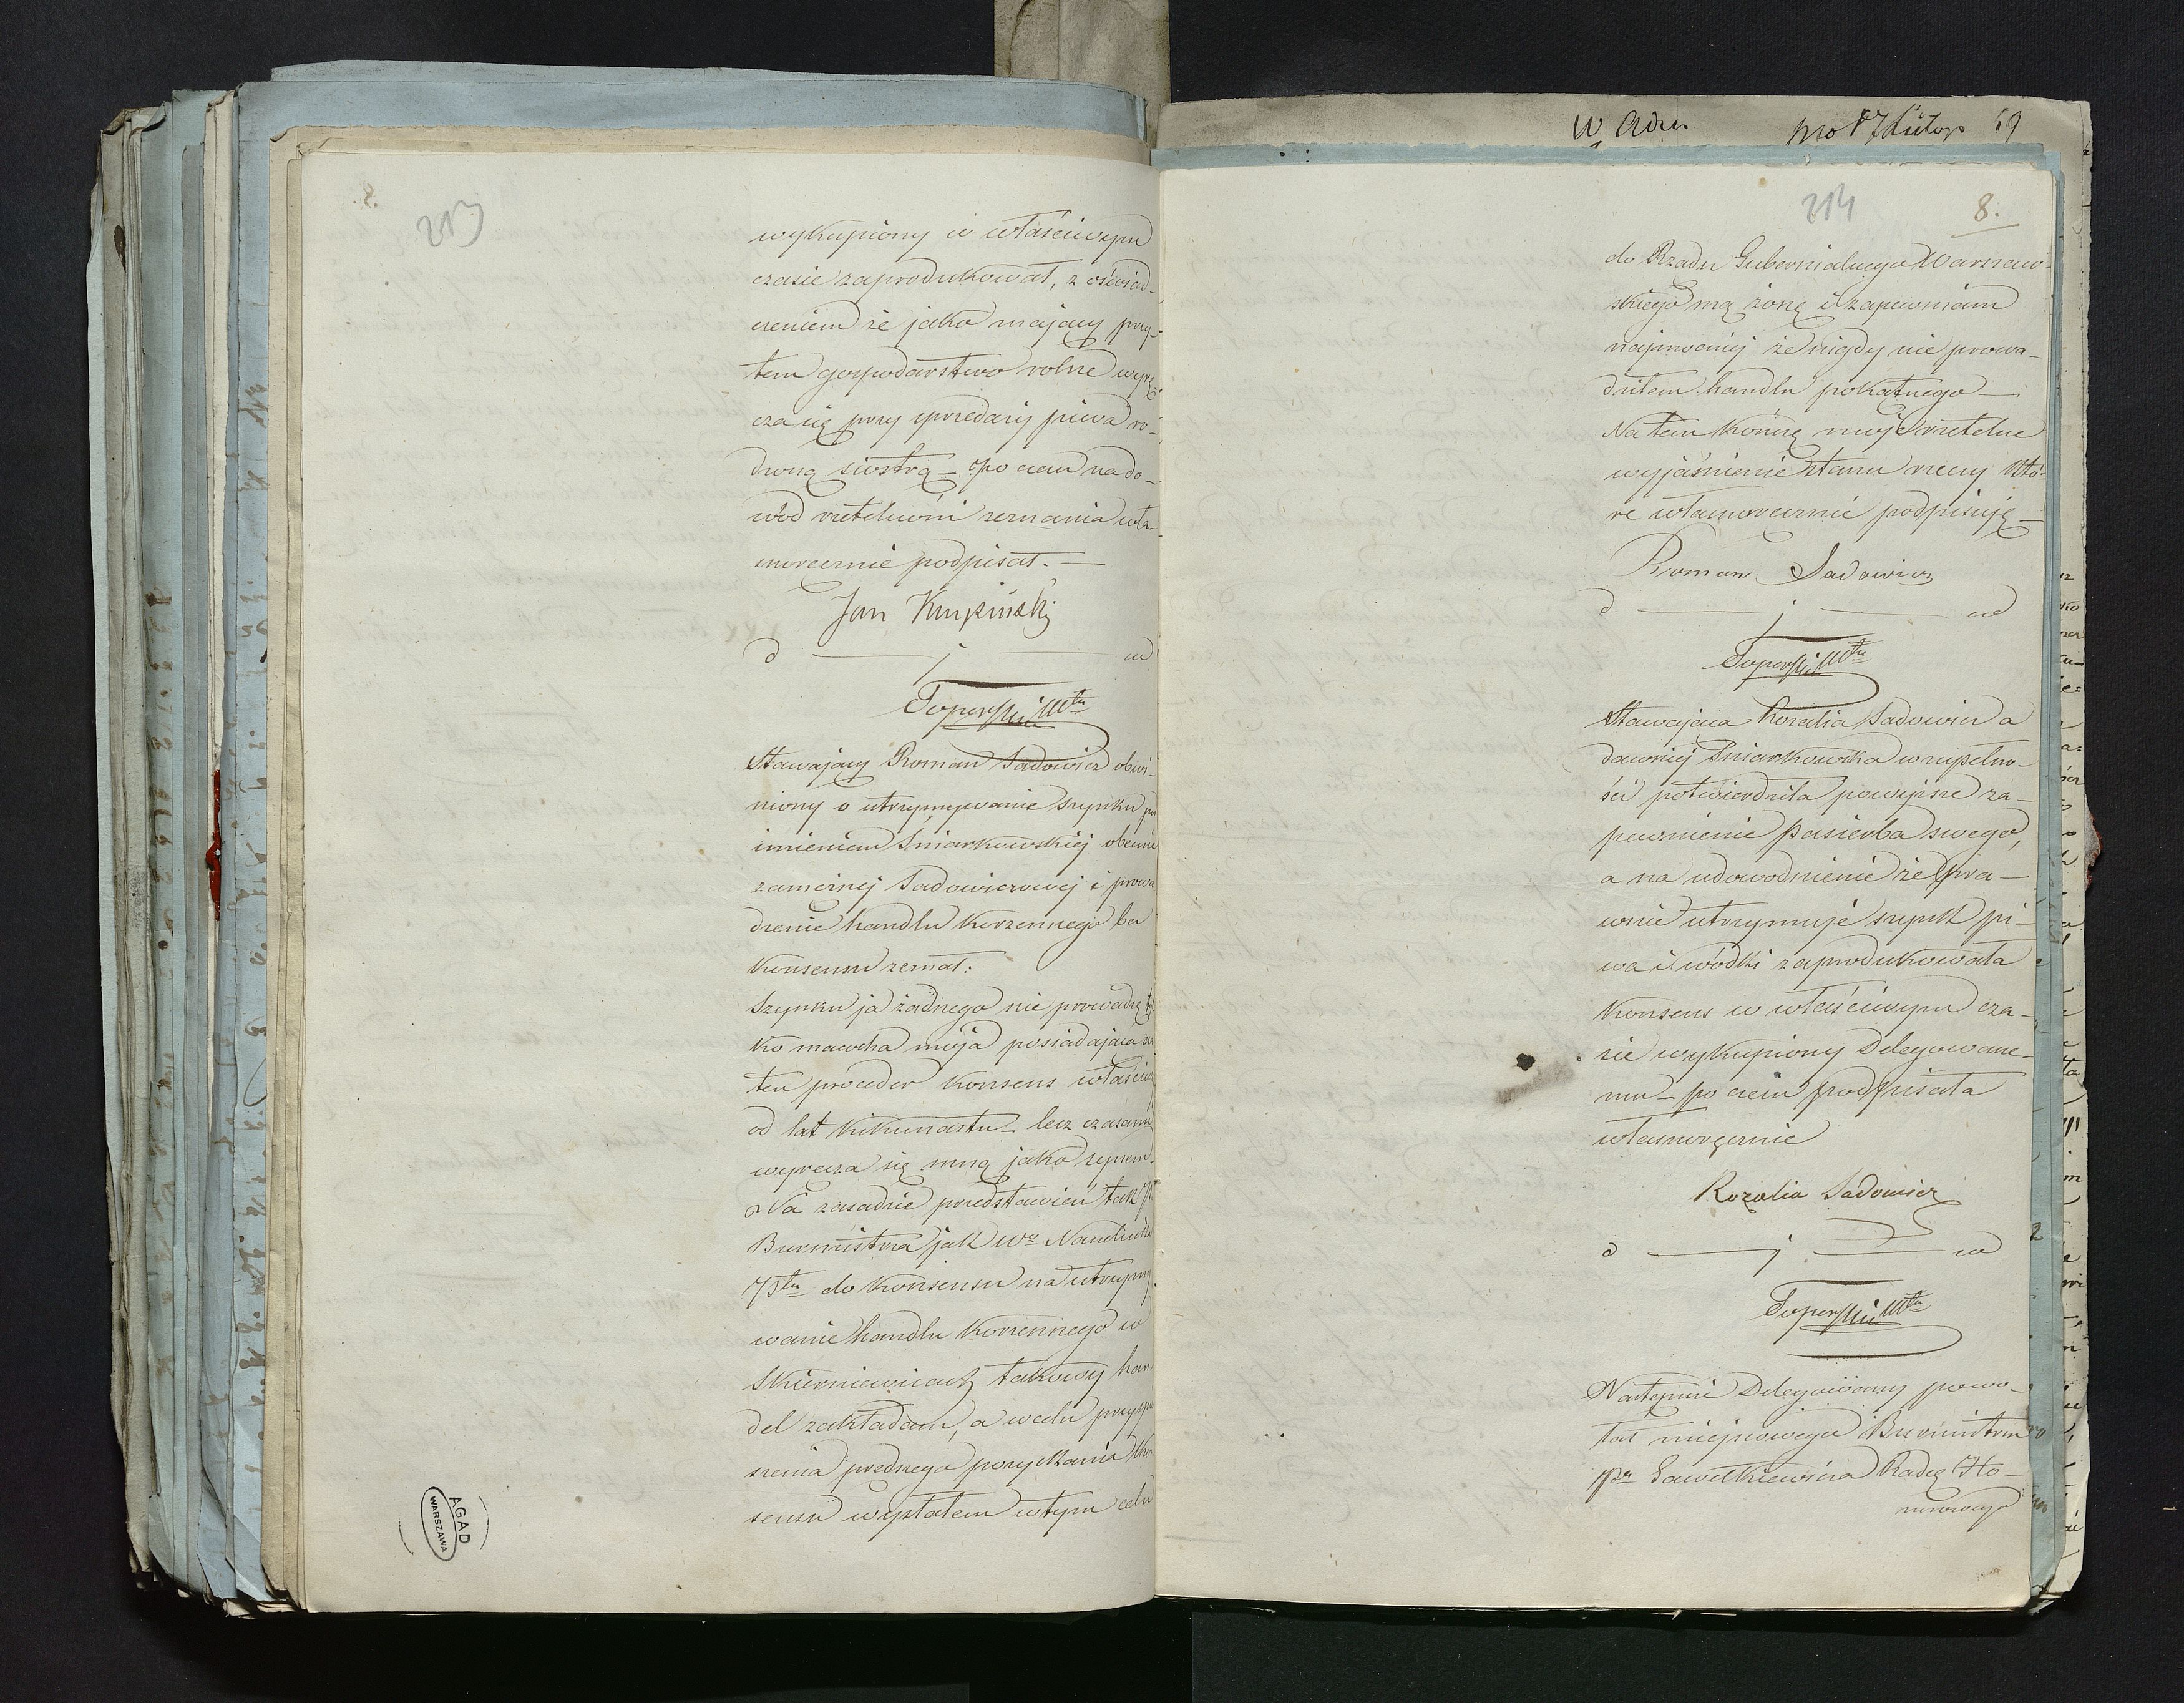 213
wykupiony w właściwym
czasie zaprodukował, z oświad-
czeniem że jako mający przy-
tem gospodarstwo rolne wyrę-
cza się przy sprzedaży piwa ro-
dzoną siostrą – po czem na do-
wód rzetelności zeznania wła-
snoręcznie podpisał. —
Jan Krupiński
d — j — ud
Toperski mtu
Stawający Roman Sadowicz obwi-
niony o utrzymywanie szynku pod
imieniem Śniarkowskiej obecnie
zamężnej Sadowiczowej i prowa
dzenie handlu korzennego bez
konsensu zeznał:
Szynku ja żadnego nie prowadzę tyl
ko macocha moja posiadająca na
ten proceder konsens właściwy
od lat kikunastu – lecz czasami
wyręcza się mną jako synem.
Na zasadzie przedstawień tak
Burmistrza jak Wo Naczelnika
Ptu do konsensu na utrzymy
wanie handlu korzennego w
Skierniewicach takowy han
del zakładam, a w celu przyspie
szenia prędszego pozyskania kon
sensu wysłałem w tym celu
AGAD
WARSZAWA
W
69
214
8.
do Rządu Gubernialnego Warszaw-
skiego mą żonę i zapewniam
najmocniej że nigdy nie prowa-
dziłem handlu pokątnego —
Na tem kończę moje rzetelne
wyjaśnienie stanu rzeczy któ-
re własnoręcznie podpisuję —
Roman Sadowicz
d — j — ud
Toperski mtu
Stawająca Rozalia Sadowicz a
dawniej Śniarkowska w zupełno-
ści potwierdziła powyższe za-
pewnienie pasierba swego,
a na udowodnienie że pra-
wnie utrzymuje szynk pi-
wa i wódki zaprodukowała
konsens w właściwym cza-
sie wykupiony Delegowane-
mu – po czem podpisała
własnoręcznie
Rozalia Sadowicz
d — j — ud
Toperski mtu
Następnie Delegowany powo-
łał miejscowego Burmistrza
Pa Gawełkiewicza Radzę Ho-
norowego